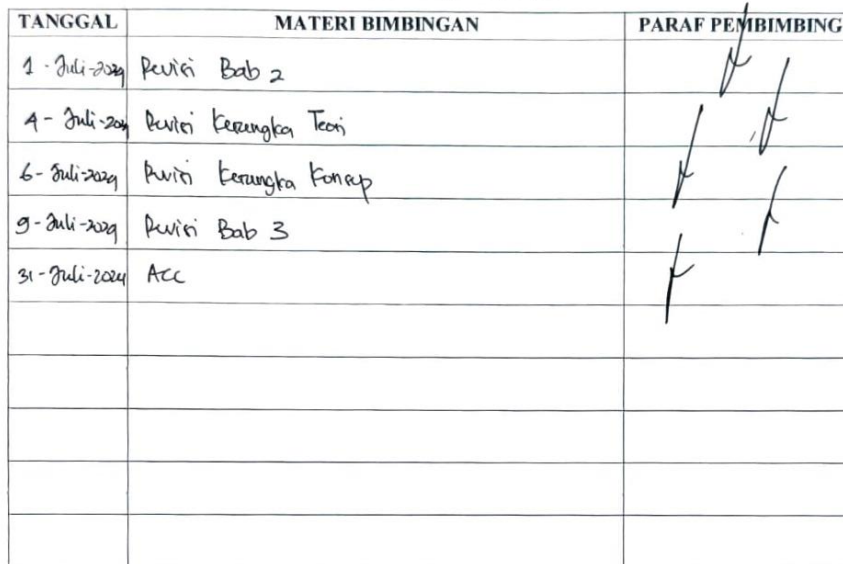 TANGGAL MATERI BIMBINGAN PARAF PEMBIMBING
1 - Juli-2024 Revisi Bab 2
4 - Juli-2024 Revisi Kerangka Teori
6 - Juli-2024 Revisi Kerangka Konsep
9 - Juli-2024 Revisi Bab 3
31 - Juli-2024 ACC